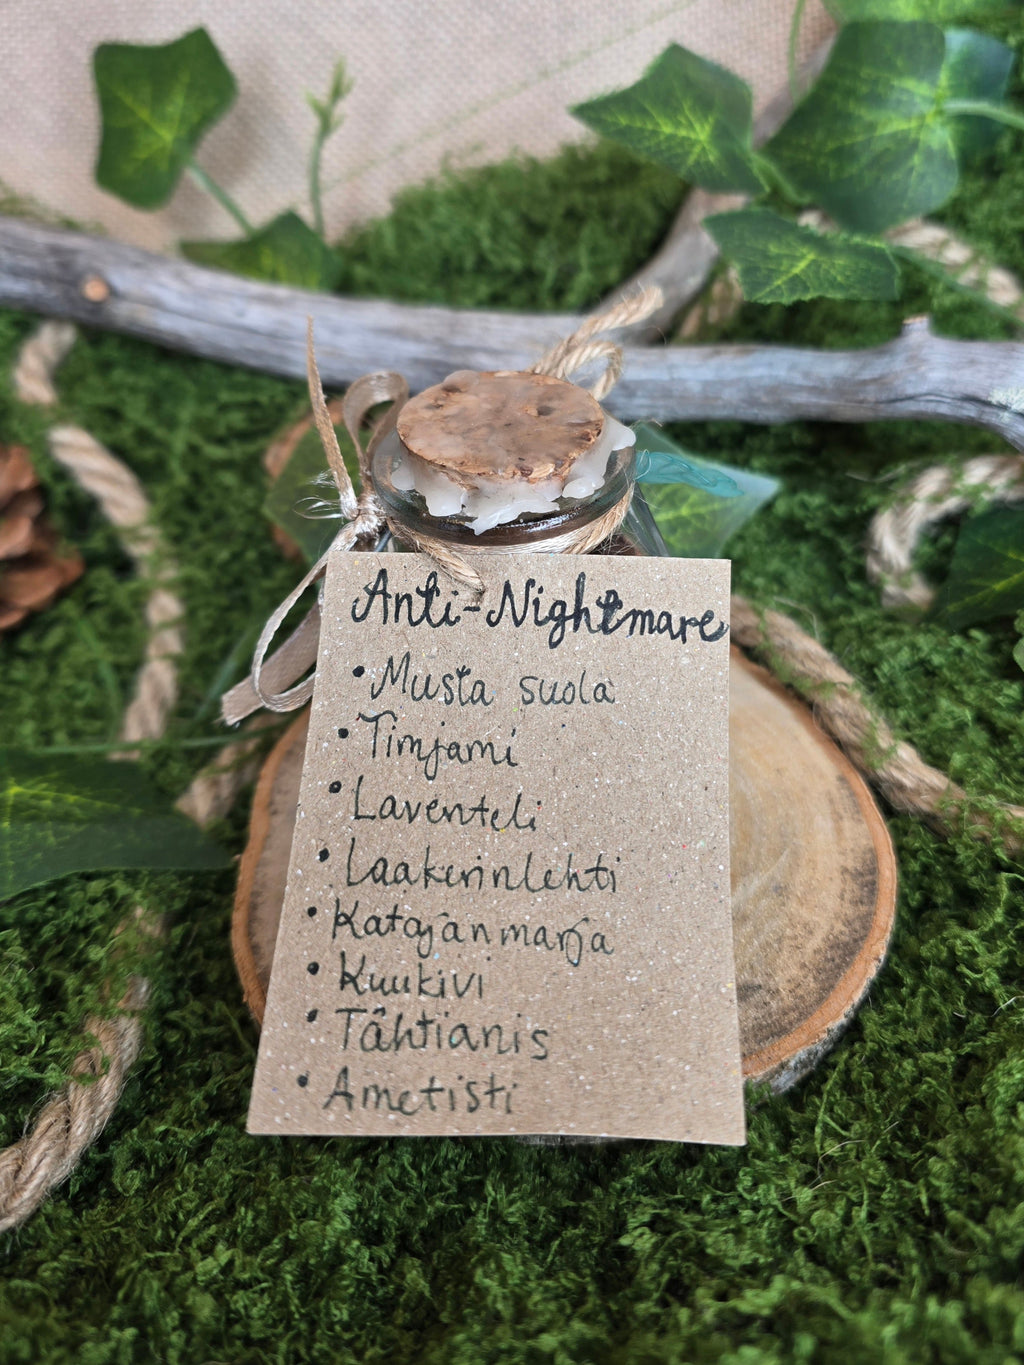 Anti-Nightmare
• Musta suola
• Timjami
• Laventeli
• Laakerinlehti
• Katajanmarja
• Kuukivi
• Tähtianis
• Ametisti